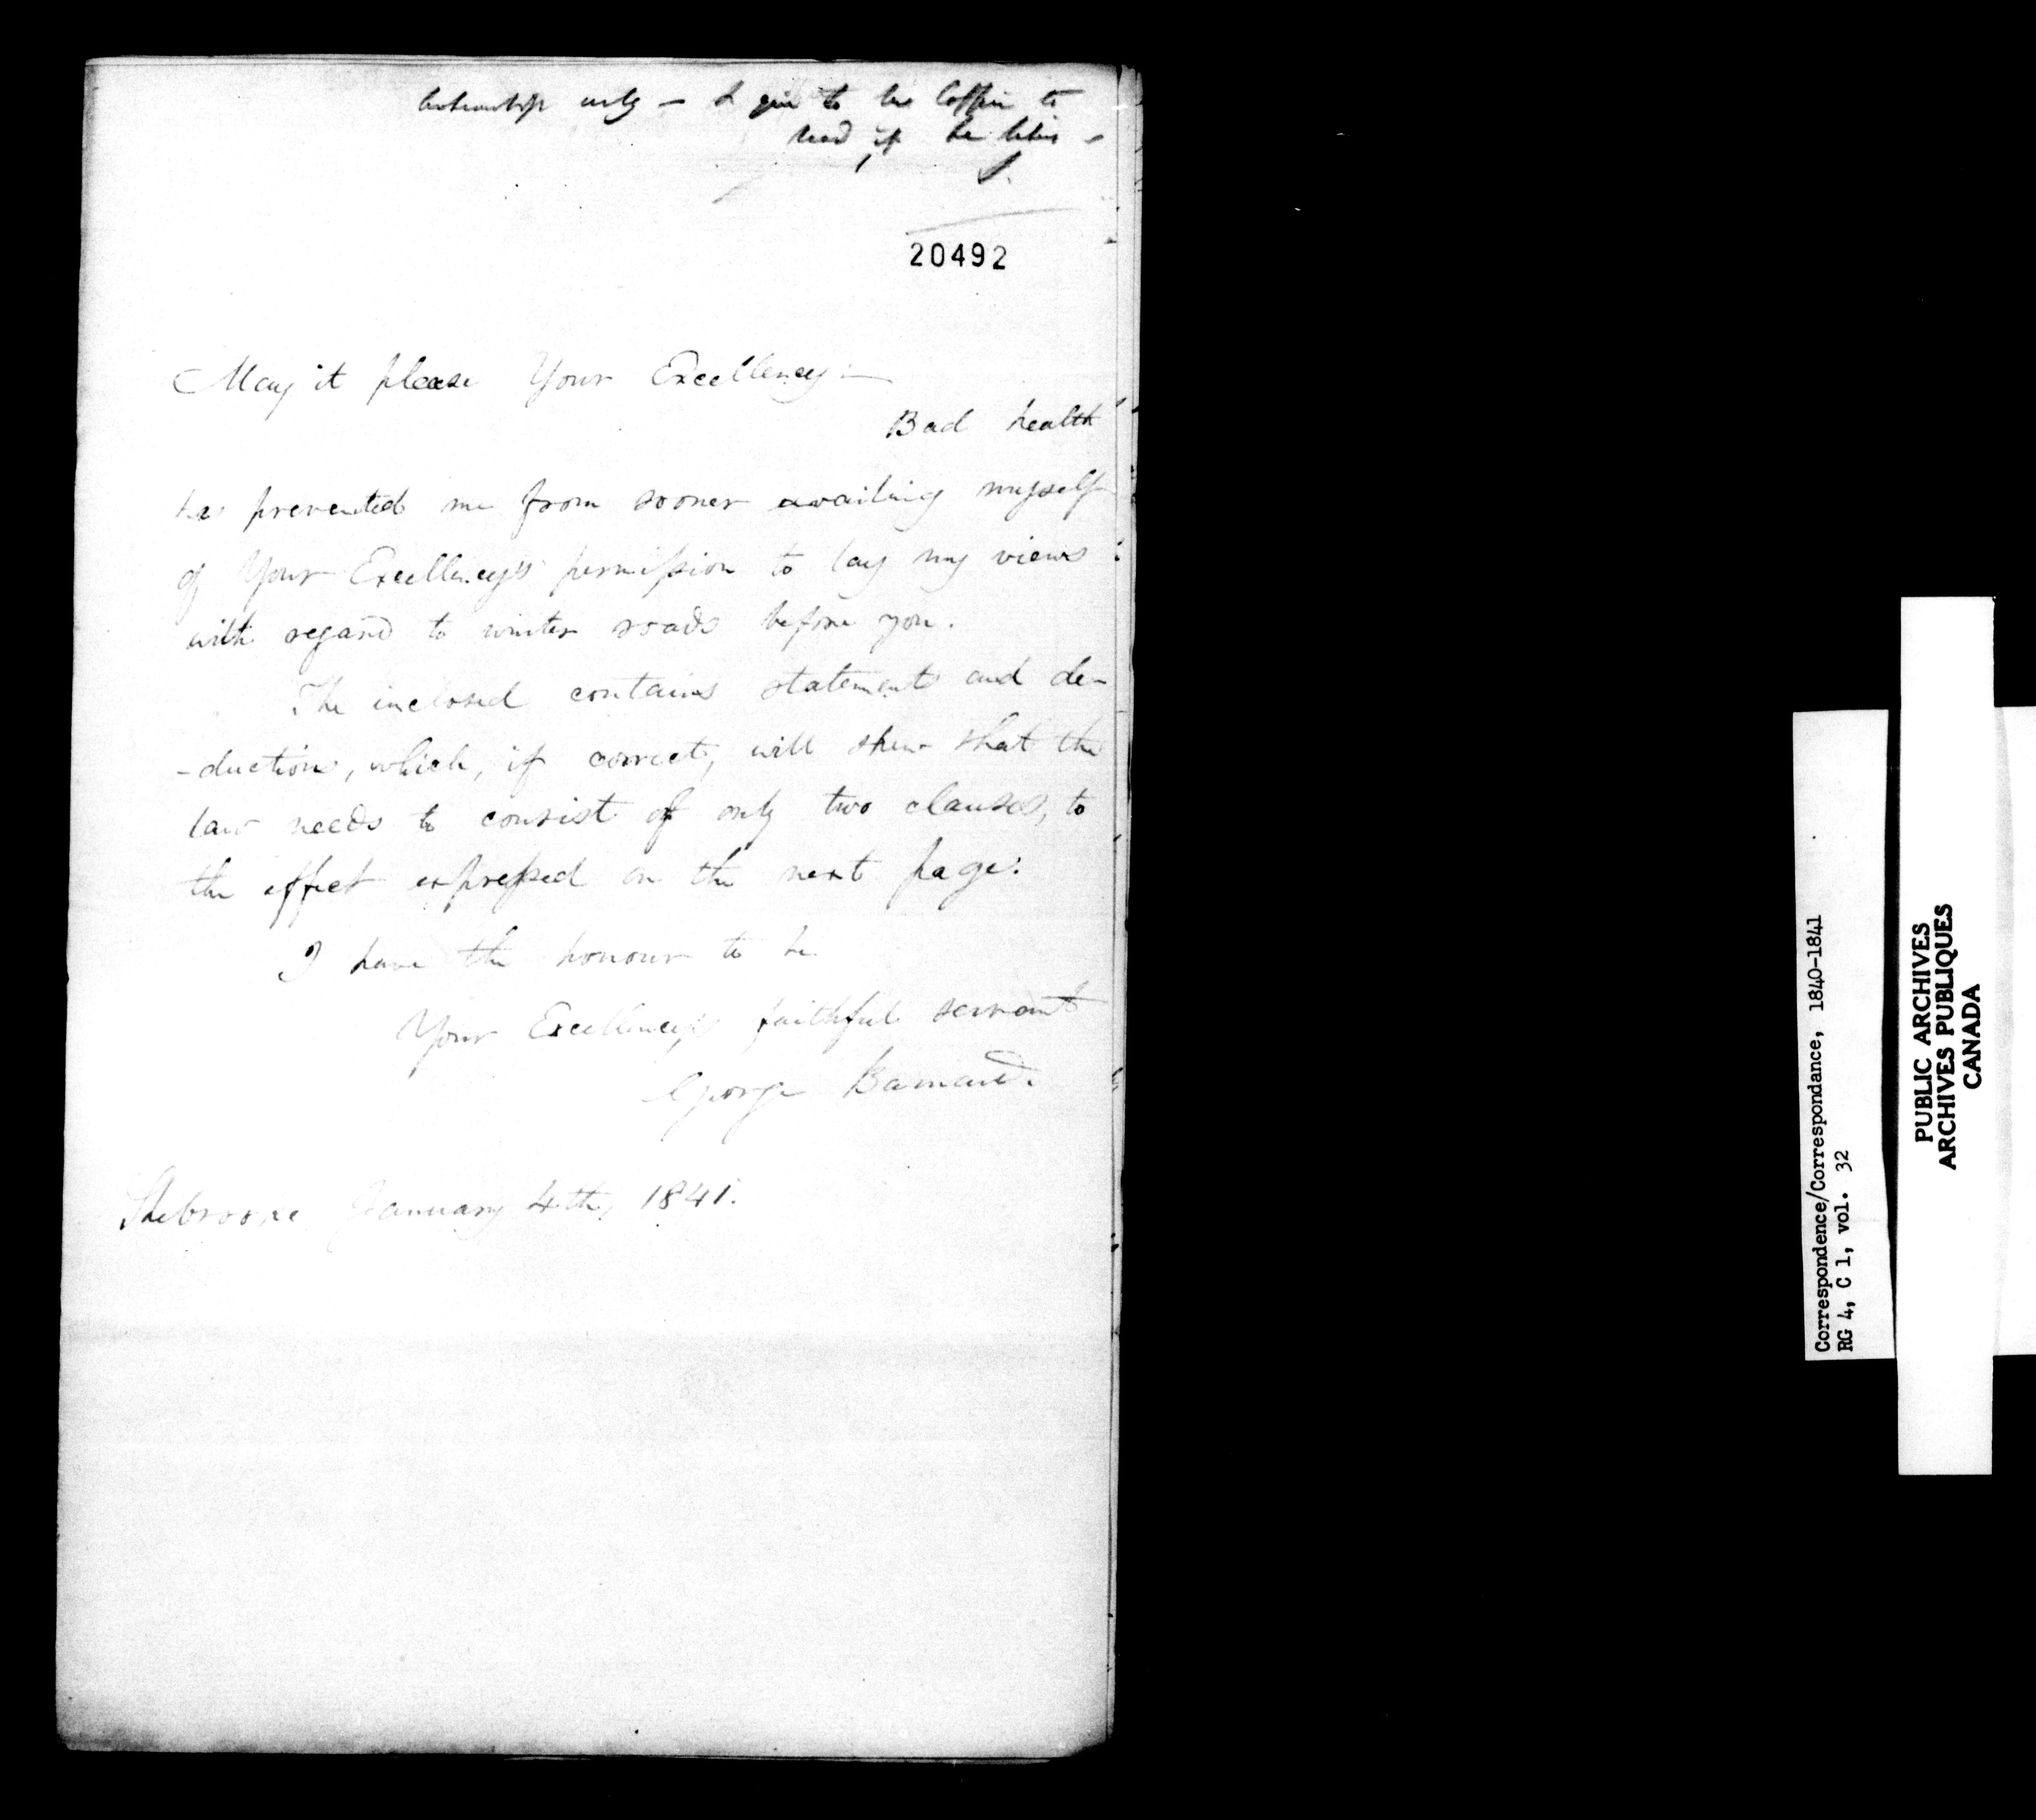 only — & give to Mr Coffin to
read if he likes -
20492
May it please Your Excellency:—
Bad health
has prevented me from sooner availing myself
of Your Excellency's permission to lay my views
with regard to winter roads before you.
The inclosed contains statements and de-
-ductions, which, if correct, will shew that the
law needs to consist of only two clauses, to
the effect expressed on the next page:
I have the honour to be
Your Excellency's faithful servant
George Barnard.
Sherbrooke January 4th, 1841.
Correspondence/Correspondance, 1840-1841
RG 4, C 1, vol. 32
PUBLIC ARCHIVES
ARCHIVES PUBLIQUES
CANADA